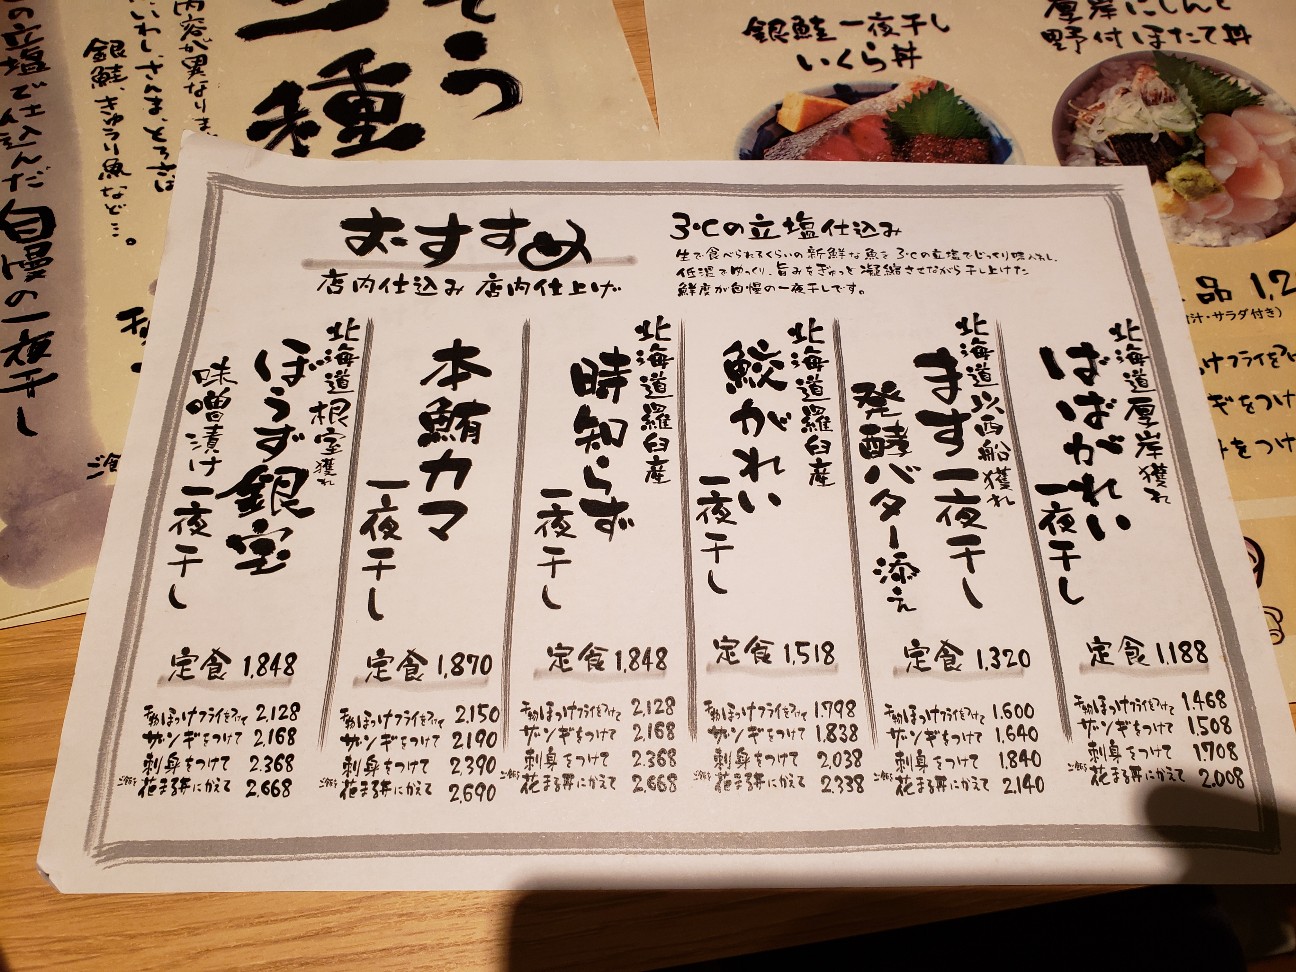 おすすめ
店内仕込み 店内仕上げ
3℃の立塩仕込み
生で食べられるくらいの新鮮な魚を3℃の立塩でじっくり味入れ。
低温でゆっくり、旨みをぎゅっと凝縮させながら干し上げた
鮮度が自慢の一夜干しです。
北海道厚岸獲れ
ばばがれい
一夜干し
定食 1,188
手動ほっけフライをつけて 1.468
ザンギをつけて 1.508
刺身をつけて 1.708
ご飯を花まる丼にかえて 2.008
北海道以西船獲れ
ます一夜干し
発酵バター添え
定食 1,320
手動ほっけフライをつけて 1.600
ザンギをつけて 1.640
刺身をつけて 1.840
ご飯を花まる丼にかえて 2.140
北海道羅臼産
鮫がれい
一夜干し
定食 1,518
手動ほっけフライをつけて 1.798
ザンギをつけて 1.838
刺身をつけて 2.038
ご飯を花まる丼にかえて 2.338
北海道羅臼産
時知らず
一夜干し
定食 1,848
手動ほっけフライをつけて 2.128
ザンギをつけて 2.168
刺身をつけて 2.368
ご飯を花まる丼にかえて 2.668
本鮪カマ
一夜干し
定食 1,870
手動ほっけフライをつけて 2.150
ザンギをつけて 2190
刺身をつけて 2.390
ご飯を花まる丼にかえて 2.690
北海道根室獲れ
ぼうず銀宝
味噌漬け一夜干し
定食 1,848
手動ほっけフライをつけて 2.128
ザンギをつけて 2.168
刺身をつけて 2.368
花まる丼にかえて 2.668
銀鮭一夜干し
いくら丼
厚岸にしんと
野付ほたて丼
品 1,2
汁・サラダ付き)
けフライをつ
ギをつけ
をつけ
種
内容が異なりま
いわし、さんま、とろさば
銀鮭、きゅうり魚など…。
の立塩で仕込んだ自慢の一夜干し